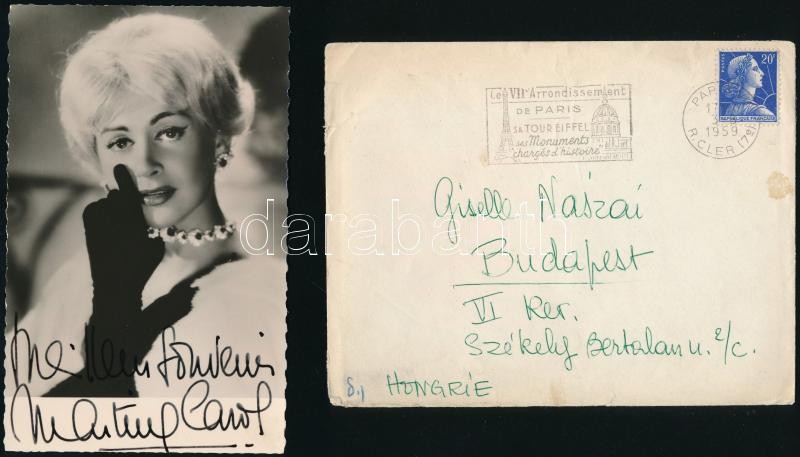 Meilleur Souvenir
Martine Carol
Le VIIe Arrondissement
DE PARIS
SA TOUR EIFFEL
ses Monuments
chargés d'histoire
POSTES
20F
REPUBLIQUE FRANÇAISE
1959
R.CLER (7e)
Giselle Naszai
Budapest
VI Ker.
Székely Bertalan u. 2/c.
HONGRIE
darabanth